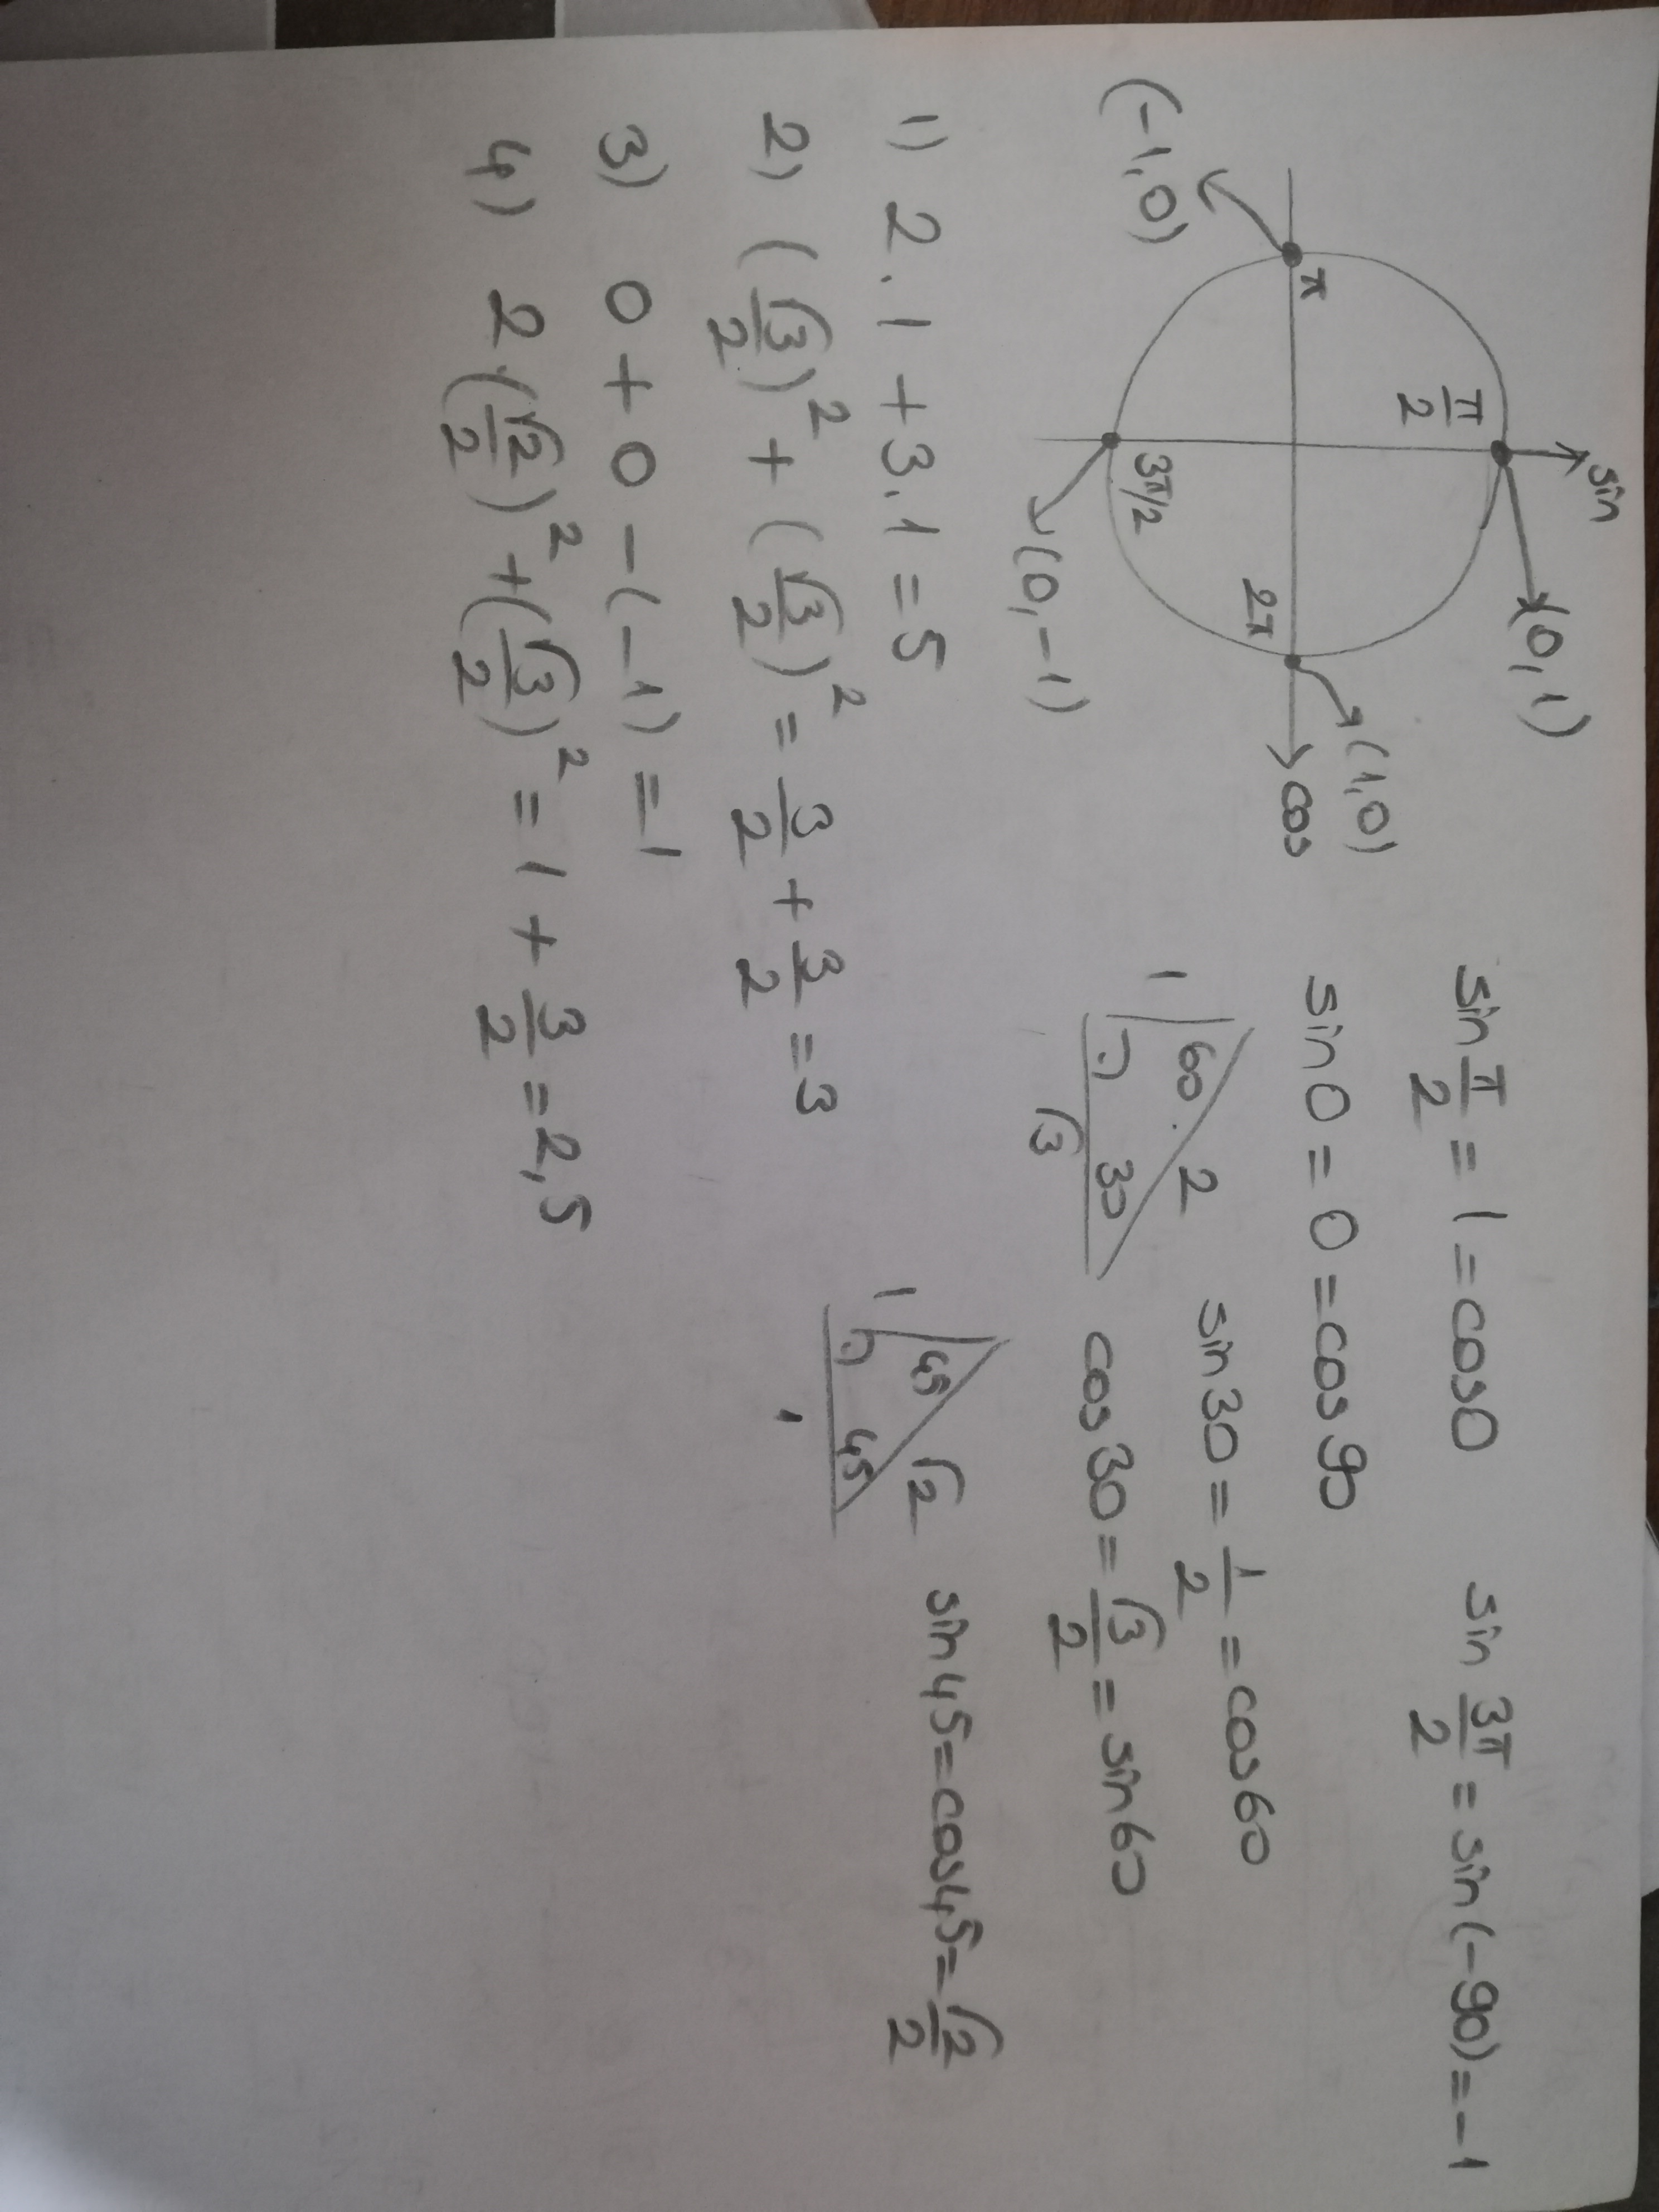 sin
π/2
(0,1)
(-1,0)
π
2π
(1,0)
cos
3π/2
(0,-1)
sin π/2 = 1 = cos0
sin 3π/2 = sin(-90) = -1
sin0 = 0 = cos90
1
60
2
30
√3
sin30 = 1/2 = cos60
cos30 = √3/2 = sin60
1
45
√2
45
1
sin45 = cos45 = √2/2
1) 2.1 + 3.1 = 5
2) (√3/2)² + (√3/2)² = 3/2 + 3/2 = 3
3) 0 + 0 - (-1) = 1
4) 2.(√2/2)² + (√3/2)² = 1 + 3/2 = 2,5